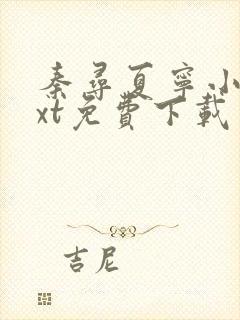 秦尋夏寧小
xt免費下載
吉尼